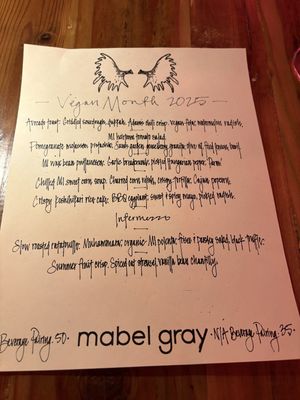 Vegan Month 2025
Avocado toast. Grilled sourdough, zhug, Adams chili crisp, vegan feta, watermelon radish.
MI heirloom tomato salad
Pomegranate molasses, pistachio,
MI wax bean puttanesca. Garlic breadcrumb, pickled hungarian pepper, "parm"
Chilled MI sweet corn soup. Charred corn relish, crispy tortilla, Cajun popcorn.
Crispy koshihikari rice cake. BBQ eggplant, sweet & spicy mayo, pickled radish.
Intermezzo
Slow roasted ratatouille. Muhammara, organic MI polenta, & parsley salad, black truffle.
Summer fruit crisp. Spiced oat streusel, vanilla bean chantilly.
Beverage Pairing 50. mabel gray N/A Beverage Pairing 35.